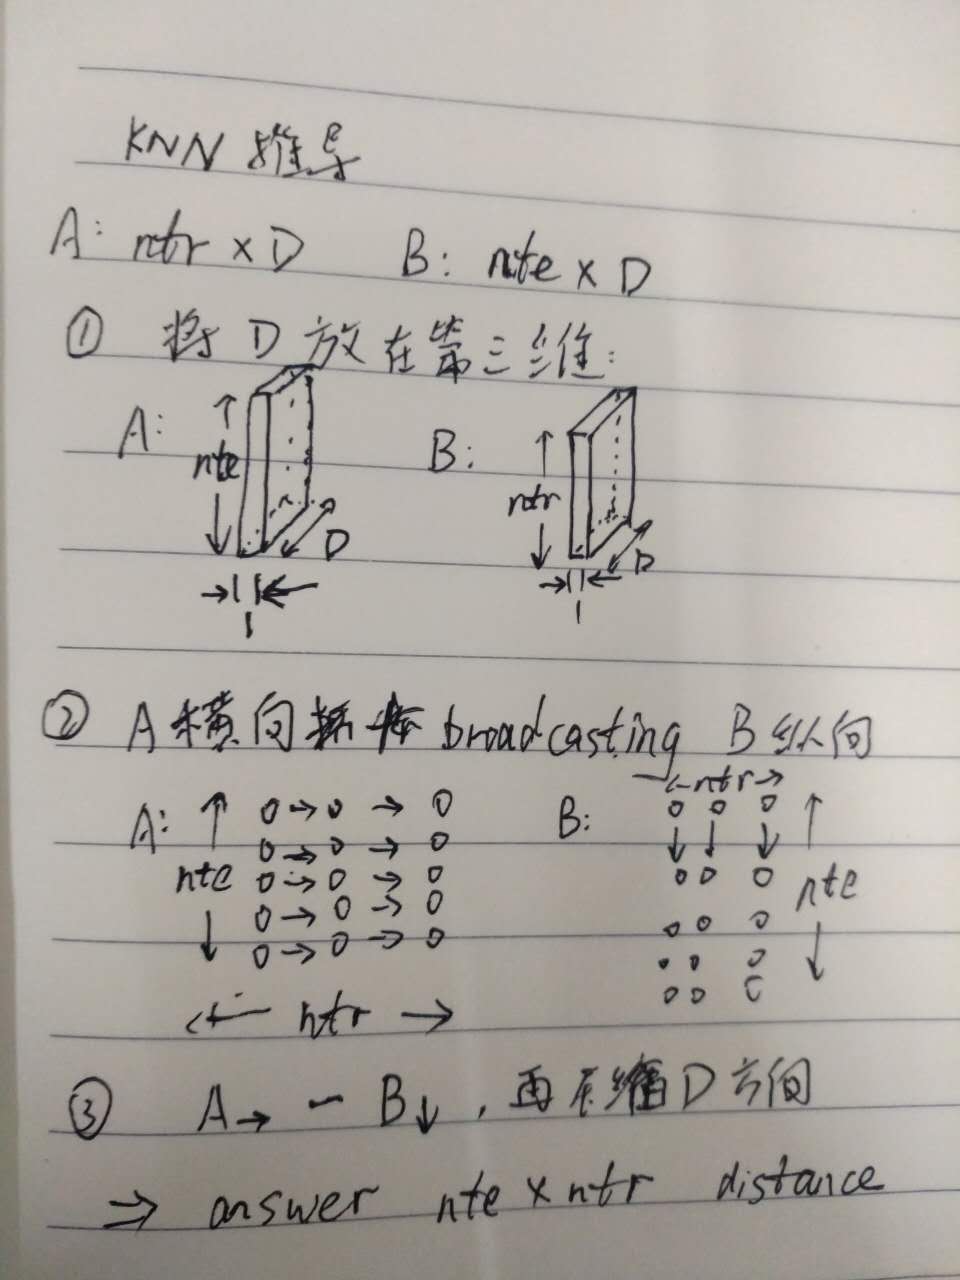 KNN 推导
A: ntr × D B: nte × D
① 将 D 放在第三维:
A: nte D 1 B: ntr D 1
② A 横向 broadcasting B 纵向
A: nte ntr B: ntr nte
③ A→ - B↓, 再压缩 D 方向
⇒ answer nte × ntr distance